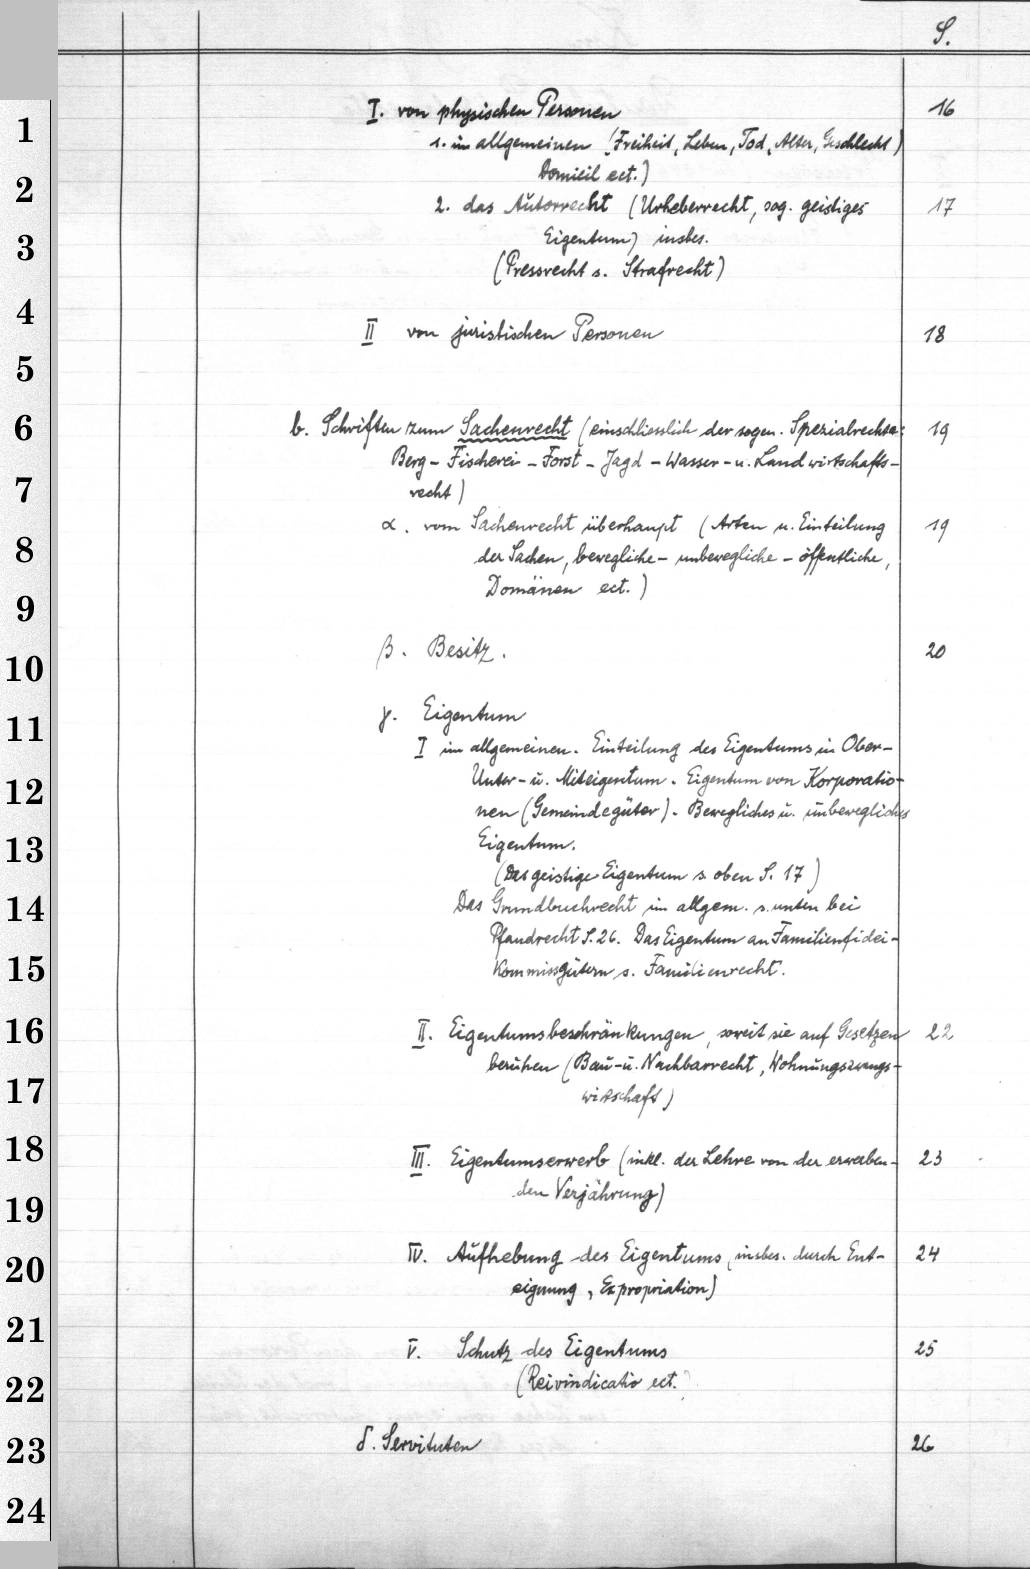 S.
I. von physischen Personen 16
1. im allgemeinen (Freiheit, Leben, Tod, Alter, Geschlecht)
Domicil ect.)
2. das Autorrecht (Urheberrecht, sog. geistiges 17
Eigentum) insbes.
(Pressrecht s. Strafrecht)
II von juristischen Personen 18
b. Schriften zum Sachenrecht (einschliesslich der sogen. Spezialrechte: 19
Berg- Fischerei - Forst - Jagd - Wasser - u. Landwirtschafts-
recht)
α. vom Sachenrecht überhaupt (Arten u. Einteilung 19
der Sachen, bewegliche - unbewegliche - öffentliche,
Domänen ect.)
β. Besitz. 20
γ. Eigentum
I im allgemeinen. Einteilung des Eigentums in Ober-
Unter- u. Miteigentum. Eigentum von Korporatio-
nen (Gemeindegüter). Bewegliches u. unbewegliches
Eigentum.
(Das geistige Eigentum s. oben S. 17)
Das Grundbuchrecht im allgem. s. unten bei
Pfandrecht S. 26. Das Eigentum an Familienfidei-
Kommissgütern s. Familienrecht.
II. Eigentumsbeschränkungen, soweit sie auf Gesetzen 22
beruhen (Bau- u. Nachbarrecht, Wohnungszwangs-
wirtschaft)
III. Eigentumserwerb (inkl. der Lehre von der erwerben- 23
den Verjährung)
IV. Aufhebung des Eigentums (insbes. durch Ent- 24
eignung, Expropriation)
V. Schutz des Eigentums 25
(Reivindicatio ect.)
δ. Servituten 26
1
2
3
4
5
6
7
8
9
10
11
12
13
14
15
16
17
18
19
20
21
22
23
24